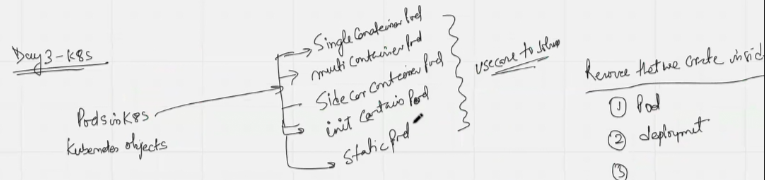 Day 3 - K8s
Pods in K8s
Kubernetes objects
Single Container Pod
multi Container Pod
Side car container Pod
init Contain Pod
Static Pod
usecase to
Resource that we create insid
① Pod
② deployment
③